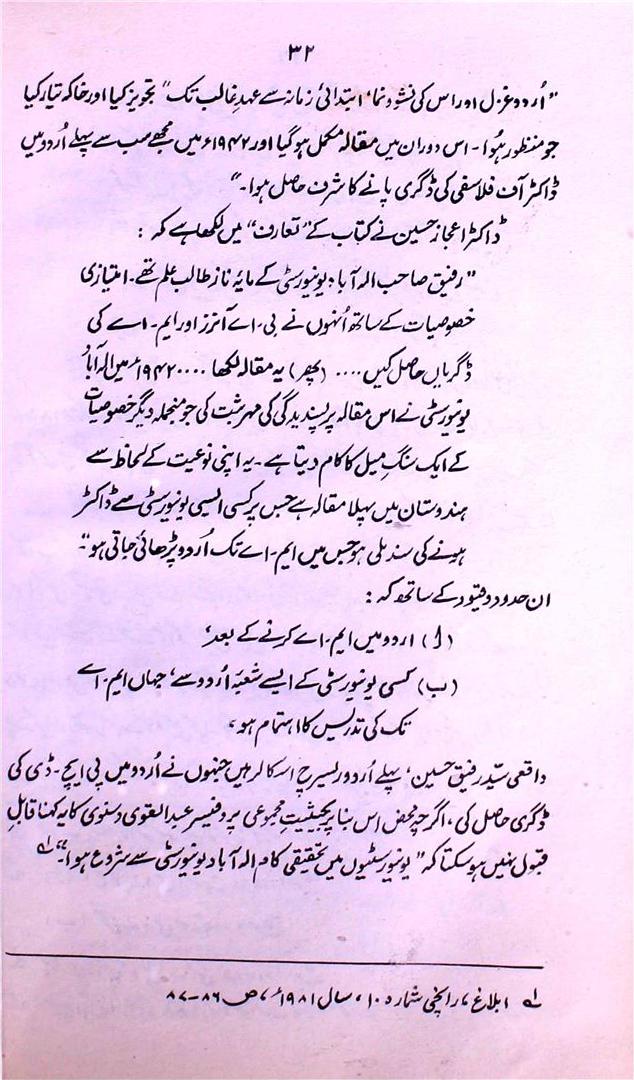 ۳۲
"اُردو غزل اور اس کی نشوونما، ابتدائی زمانہ سے عہدِ غالب تک" تجویز کیا اور خاکہ تیار کیا
جو منظور ہُوا۔ اس دوران میں مقالہ مکمل ہو گیا اور ۱۹۴۲ء میں مجھے سب سے پہلے اُردو میں
ڈاکٹر آف فلاسفی کی ڈگری پانے کا شرف حاصل ہوا۔"
ڈاکٹر اعجاز حسین نے کتاب کے "تعارف" میں لکھا ہے کہ :
"رفیق صاحب الہ آباد یونیورسٹی کے مایۂ ناز طالب علم تھے۔ امتیازی
خصوصیات کے ساتھ اُنہوں نے بی۔اے آنرز اور ایم۔اے کی
ڈگریاں حاصل کیں .... (پھر) یہ مقالہ لکھا .... ۱۹۴۲ء میں الہ آباد
یونیورسٹی نے اس مقالہ پر پسندیدگی کی مہر ثبت کی جو منجملہ دیگر خصوصیات
کے ایک سنگِ میل کا کام دیتا ہے۔ یہ اپنی نوعیت کے لحاظ سے
ہندوستان میں پہلا مقالہ ہے جس پر کسی ایسی یونیورسٹی سے ڈاکٹر
ہونے کی سند ملی ہو جس میں ایم۔اے تک اُردو پڑھائی جاتی ہو"۔
ان حدود و قیود کے ساتھ کہ :
(ا) اردو میں ایم۔اے کرنے کے بعد،
(ب) کسی یونیورسٹی کے ایسے شعبۂ اُردو سے، جہاں ایم۔اے
تک کی تدریس کا اہتمام ہو،
واقعی سیّد رفیق حسین، پہلے اُردو ریسرچ اسکالر ہیں جنہوں نے اُردو میں پی ایچ۔ڈی کی
ڈگری حاصل کی، اگرچہ محض اس بنا پر بحیثیتِ مجموعی پروفیسر عبدالقوی دسنوی کا یہ کہنا قابلِ
قبول نہیں ہو سکتا کہ "یونیورسٹیوں میں تحقیقی کام الہ آباد یونیورسٹی سے شروع ہوا۔" لہ
لہ ابلاغ، رانچی شمارہ ۱۰، سال ۱۹۸۱ء، ص ۸۶-۸۷